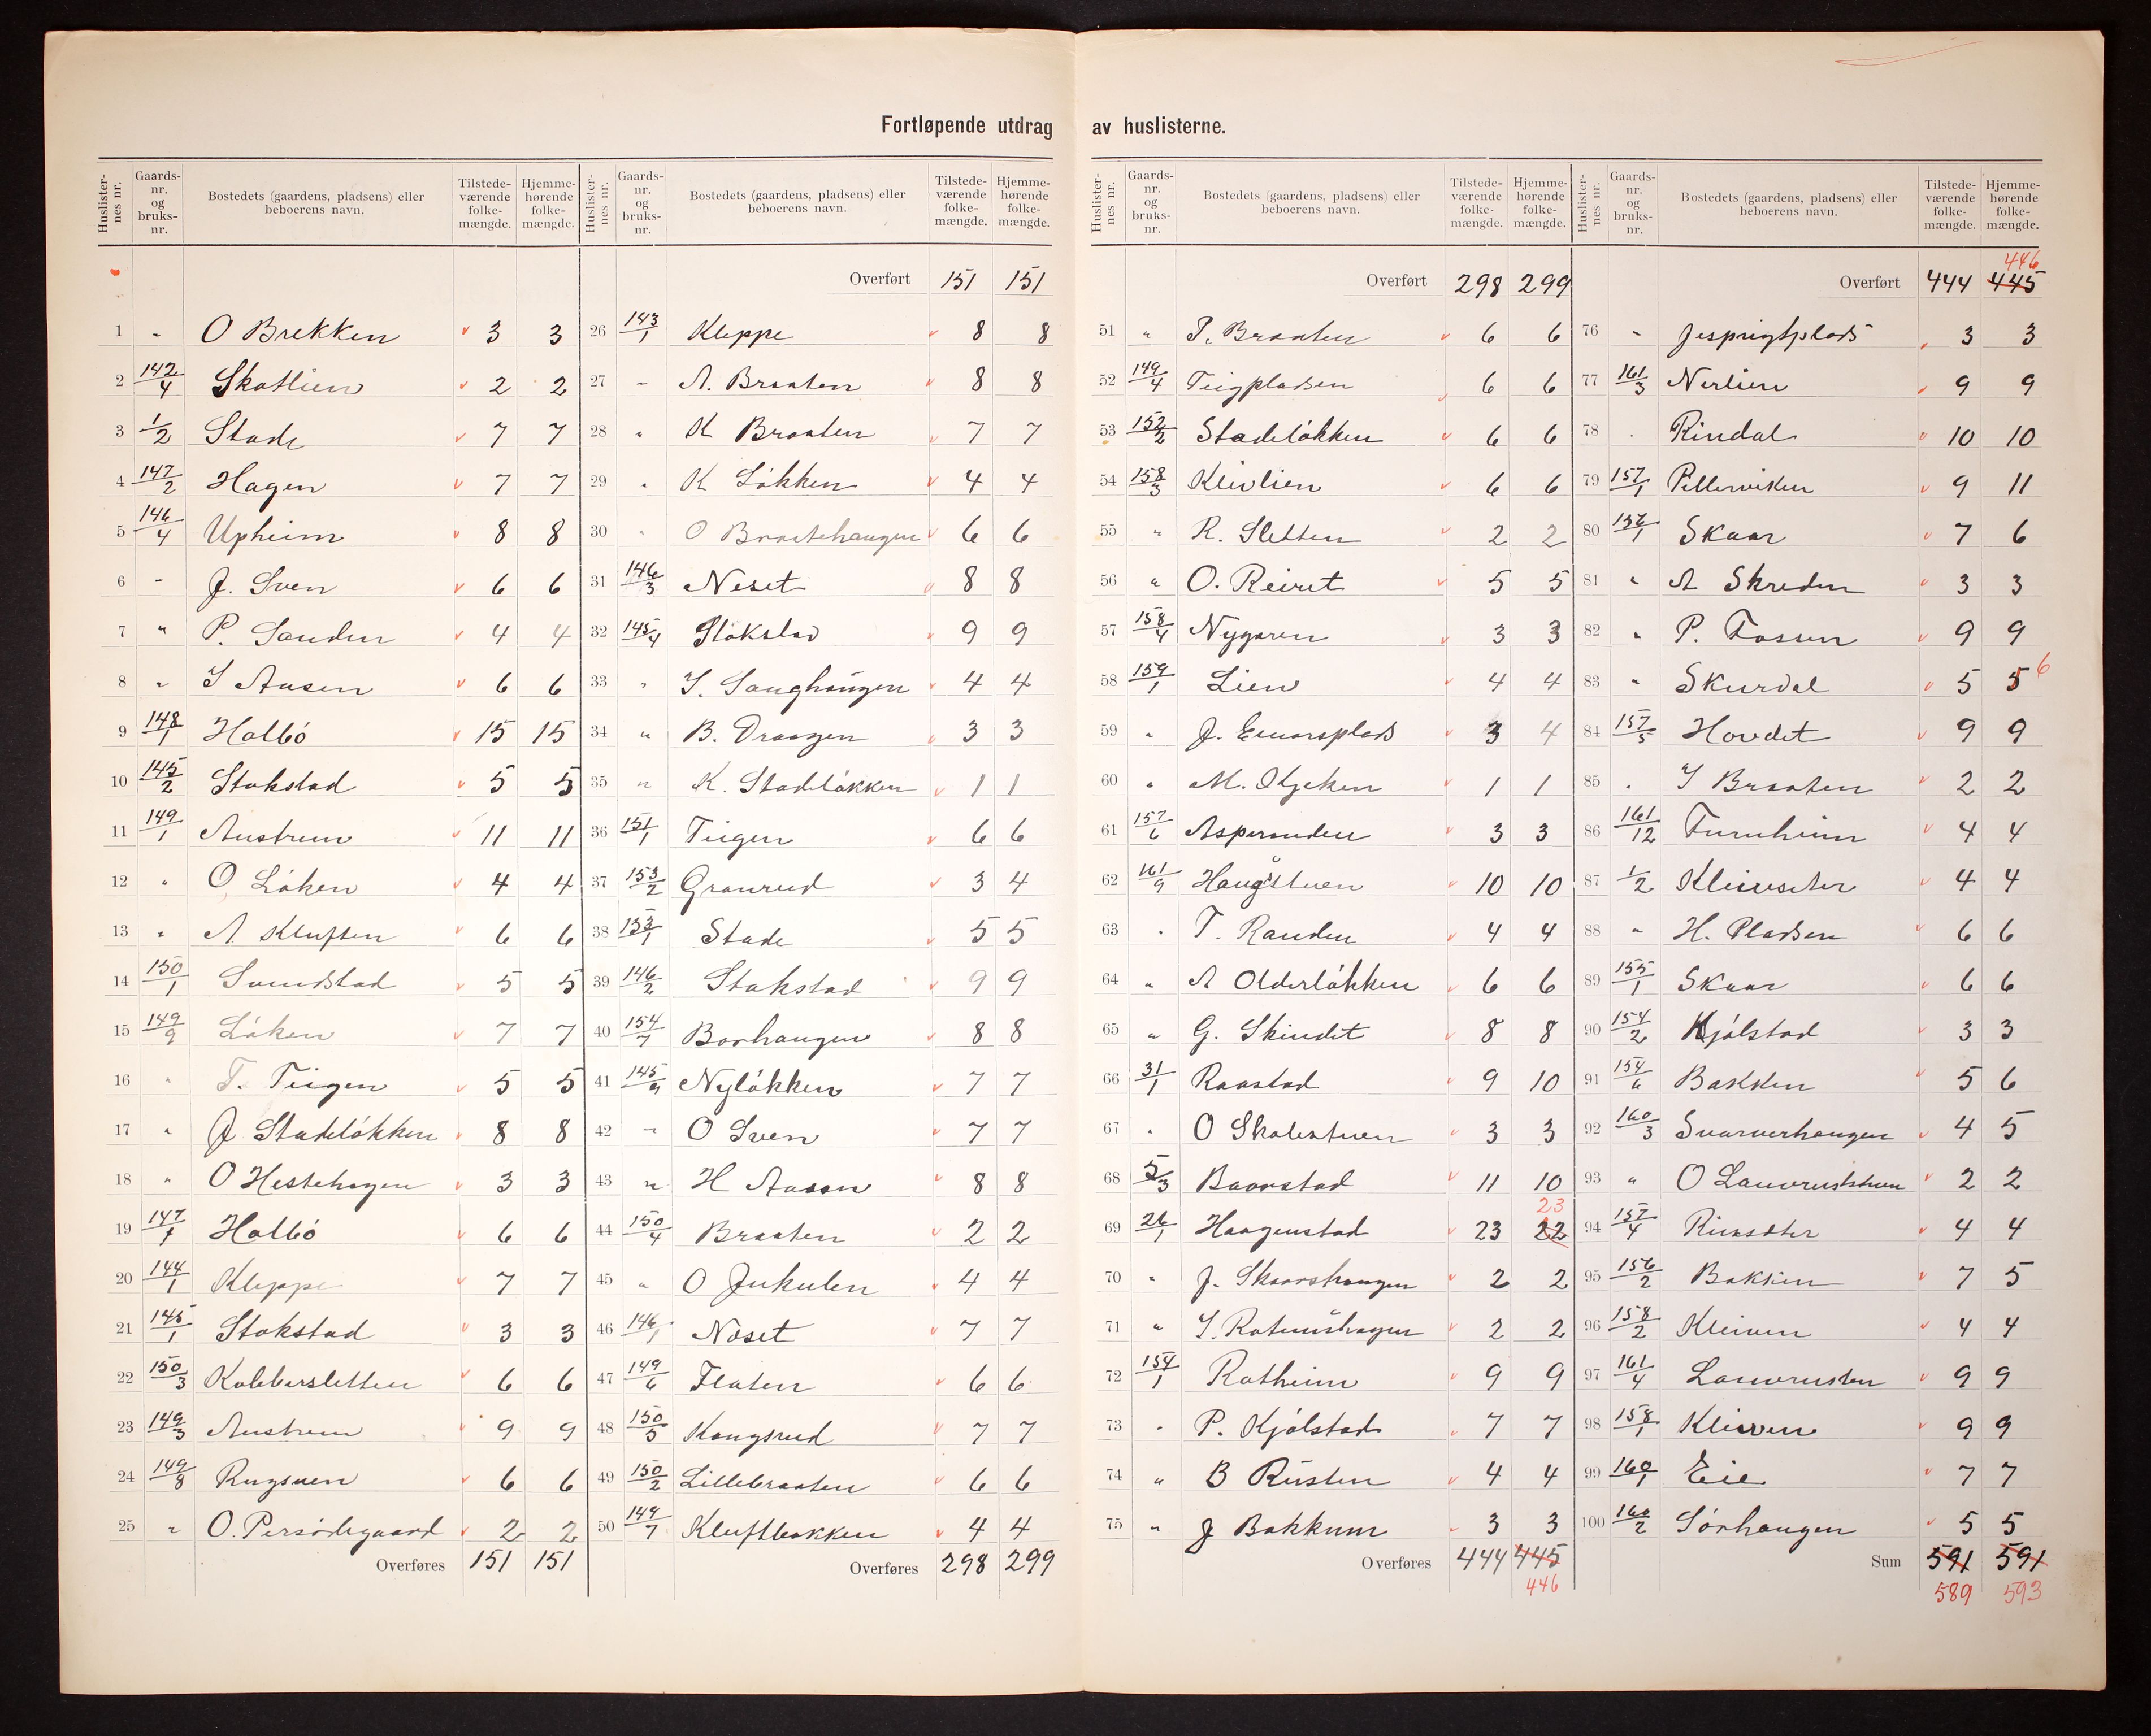 Fortløpende utdrag av huslisterne.
Huslister-nes nr. Gaards-nr. og bruks-nr. Bostedets (gaardens, pladsens) eller beboerens navn. Tilstede-værende folke-mængde. Hjemme-hørende folke-mængde.
1 " O Brekken 3 3
2 142/4 Skotlien 2 2
3 1/2 Stade 7 7
4 147/2 Hagen 7 7
5 146/4 Upheim 8 8
6 - J. Sven 6 6
7 " P. Sanden 4 4
8 " I Aasen 6 6
9 148/1 Holbö 15 15
10 145/2 Stokstad 5 5
11 149/1 Austrem 11 11
12 " O Löken 4 4
13 " A Kluften 6 6
14 150/1 Sundstad 5 5
15 149/9 Löken 7 7
16 " T. Teigen 5 5
17 " J Stadelökken 8 8
18 " O Hestehagen 3 3
19 147/1 Holbö 6 6
20 144/1 Kleppe 7 7
21 145/1 Stokstad 3 3
22 150/3 Kobbersletten 6 6
23 149/3 Austrem 9 9
24 149/8 Rugsven 6 6
25 " O. Persödegaard 2 2
Overføres 151 151
Huslister-nes nr. Gaards-nr. og bruks-nr. Bostedets (gaardens, pladsens) eller beboerens navn. Tilstede-værende folke-mængde. Hjemme-hørende folke-mængde.
Overført 151 151
26 143/1 Kleppe 8 8
27 - A. Braaten 8 8
28 " K Braaten 7 7
29 " K Lökken 4 4
30 " O Braatehaugen 6 6
31 146/3 Neset 8 8
32 145/4 Stokstad 9 9
33 " I. Sanghaugen 4 4
34 " B. Draagen 3 3
35 " K. Stadelökken 1 1
36 151/1 Teigen 6 6
37 153/2 Granrud 3 4
38 153/1 Stade 5 5
39 146/2 Stokstad 9 9
40 154/7 Borhaugen 8 8
41 145/9 Nylökken 7 7
42 " O Sven 7 7
43 " H Aasen 8 8
44 150/4 Braaten 2 2
45 " O Jukulen 4 4
46 146/1 Neset 7 7
47 149/6 Flaten 6 6
48 150/5 Kongsrud 7 7
49 150/2 Lillebraaten 6 6
50 149/7 Kluftbakken 4 4
Overføres 298 299
Huslister-nes nr. Gaards-nr. og bruks-nr. Bostedets (gaardens, pladsens) eller beboerens navn. Tilstede-værende folke-mængde. Hjemme-hørende folke-mængde.
Overført 298 299
51 " P. Braaten 6 6
52 149/4 Teigpladsen 6 6
53 152/2 Stadelökken 6 6
54 158/3 Kleivlien 6 6
55 " R. Sletten 2 2
56 " O. Reiret 5 5
57 158/4 Nygaren 3 3
58 159/1 Lien 4 4
59 " J. Einarsplads 3 4
60 " M. Kjeken 1 1
61 157/6 Asperanden 3 3
62 161/9 Haugstuen 10 10
63 " T. Randen 4 4
64 " A Olderlökken 6 6
65 " G. Skindet 8 8
66 31/1 Raastad 9 10
67 " O Skolestuen 3 3
68 5/3 Baarstad 11 10
69 26/1 Haagenstad 23 22 23
70 " J. Skaarshaugen 2 2
71 " I. Rotumshagen 2 2
72 154/1 Ratheim 9 9
73 " P. Kjölstad 7 7
74 " B Rusten 4 4
75 " J Bakkum 3 3
Overføres 444 445
446
Huslister-nes nr. Gaards-nr. og bruks-nr. Bostedets (gaardens, pladsens) eller beboerens navn. Tilstede-værende folke-mængde. Hjemme-hørende folke-mængde.
446
Overført 444 445
76 " Jesprigtplads 3 3
77 161/3 Nerlien 9 9
78 . Rindal 10 10
79 157/1 Pillerviken 9 11
80 156/1 Skaar 7 6
81 " A Skreden 3 3
82 " P. Fossen 9 9
83 " Skurdal 5 5 6
84 157/5 Hovdet 9 9
85 . I Braaten 2 2
86 161/12 Furuheim 4 4
87 1/2 Kleivseter 4 4
88 " H. Pladsen 6 6
89 155/1 Skaar 6 6
90 154/2 Kjölstad 3 3
91 154/6 Bakken 5 6
92 160/3 Svarverhaugen 4 5
93 " O Lauvruststuen 2 2
94 157/4 Rinseter 4 4
95 156/2 Bakken 7 5
96 158/2 Kleiven 4 4
97 161/4 Lauvrusten 9 9
98 158/1 Kleiven 9 9
99 160/1 Eie 7 7
100 160/2 Sörhaugen 5 5
Sum 591 591
589 593